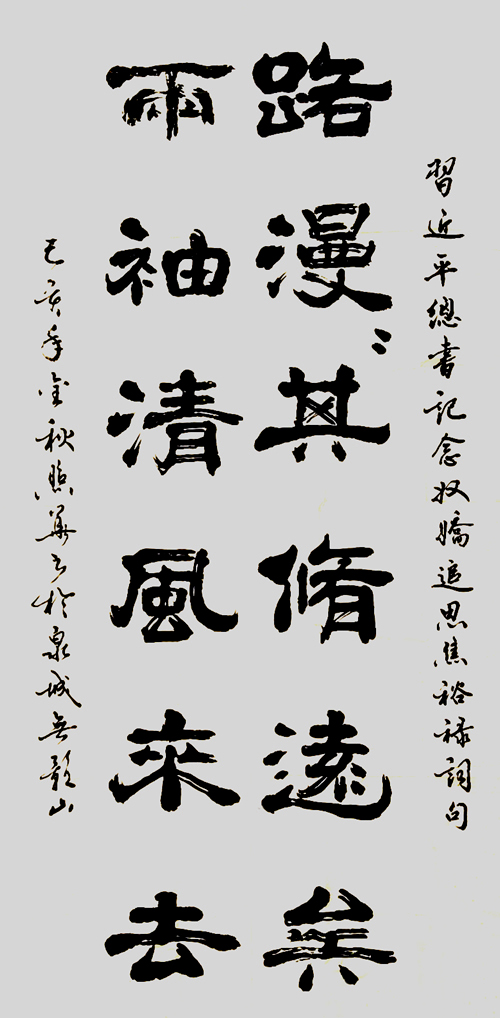 習近平總書記念奴嬌追思焦裕禄詞句
路漫〻其脩遠矣
兩袖清風來去
己亥年金秋照華书於泉城無影山